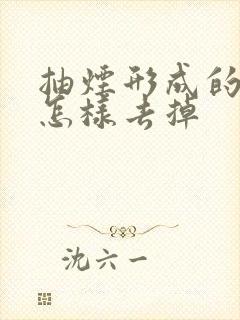 抽煙形成的
怎樣去掉
沈六一